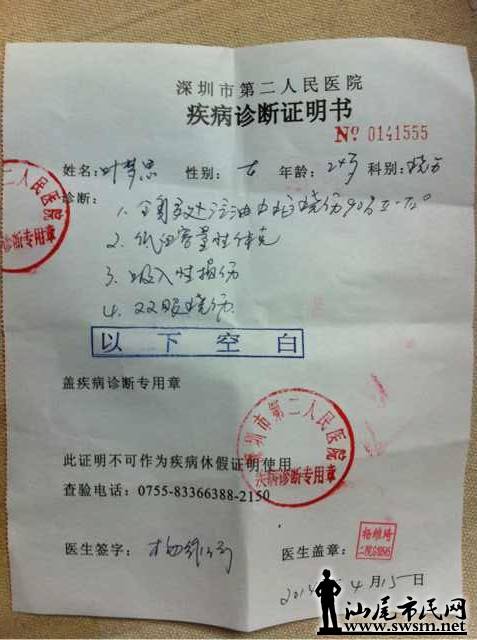 深圳市第二人民医院
疾病诊断证明书
№ 0141555
姓名:叶梦思 性别:女 年龄:24岁 科别:烧伤
诊断:
1. 全身多处汽油火焰烧伤90% II-III°
2. 低血容量性休克
3. 吸入性损伤
4. 双眼烧伤
以下空白
二人民医院
诊断专用章
盖疾病诊断专用章
深圳市第二人民医院
疾病诊断专用章
此证明不可作为疾病休假证明使用
查验电话:0755-83366388-2150
医生签字:
医生盖章:
杨维琦
4月15日
汕尾市民网
www.swsm.net